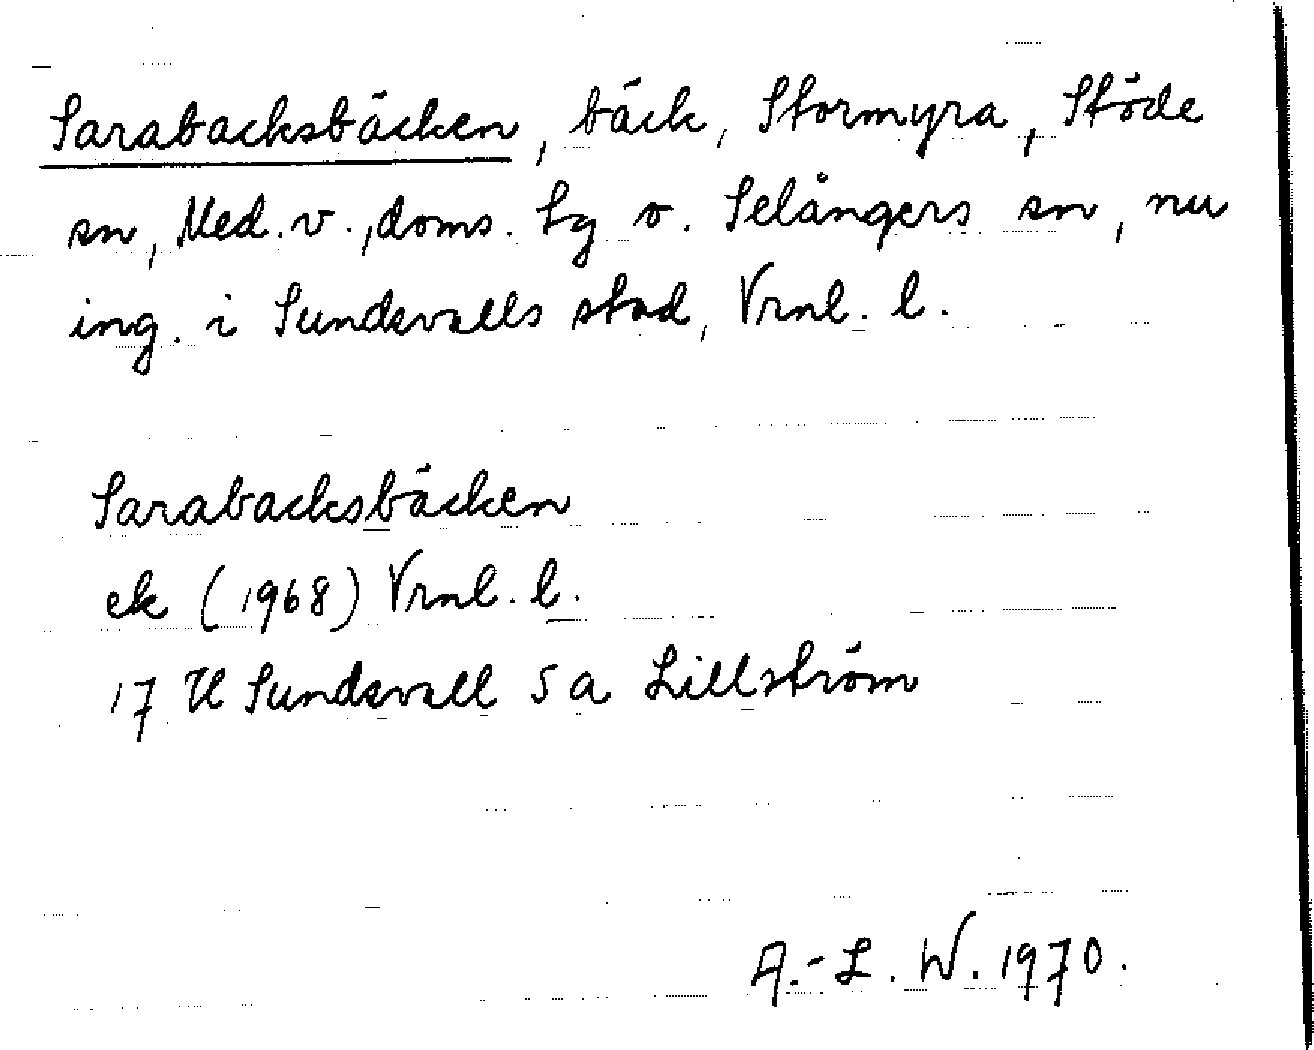 Sarabacksbäcken, bäck, Stormyra, Stöde
sn, Med. v., doms. lg o. Selångers sn, nu
ing. i Sundsvalls stad, Vrnl. l.
Sarabacksbäcken
ek (1968) Vrnl. l.
17 H Sundsvall 5 a Lillström
A.-L. W. 1970.